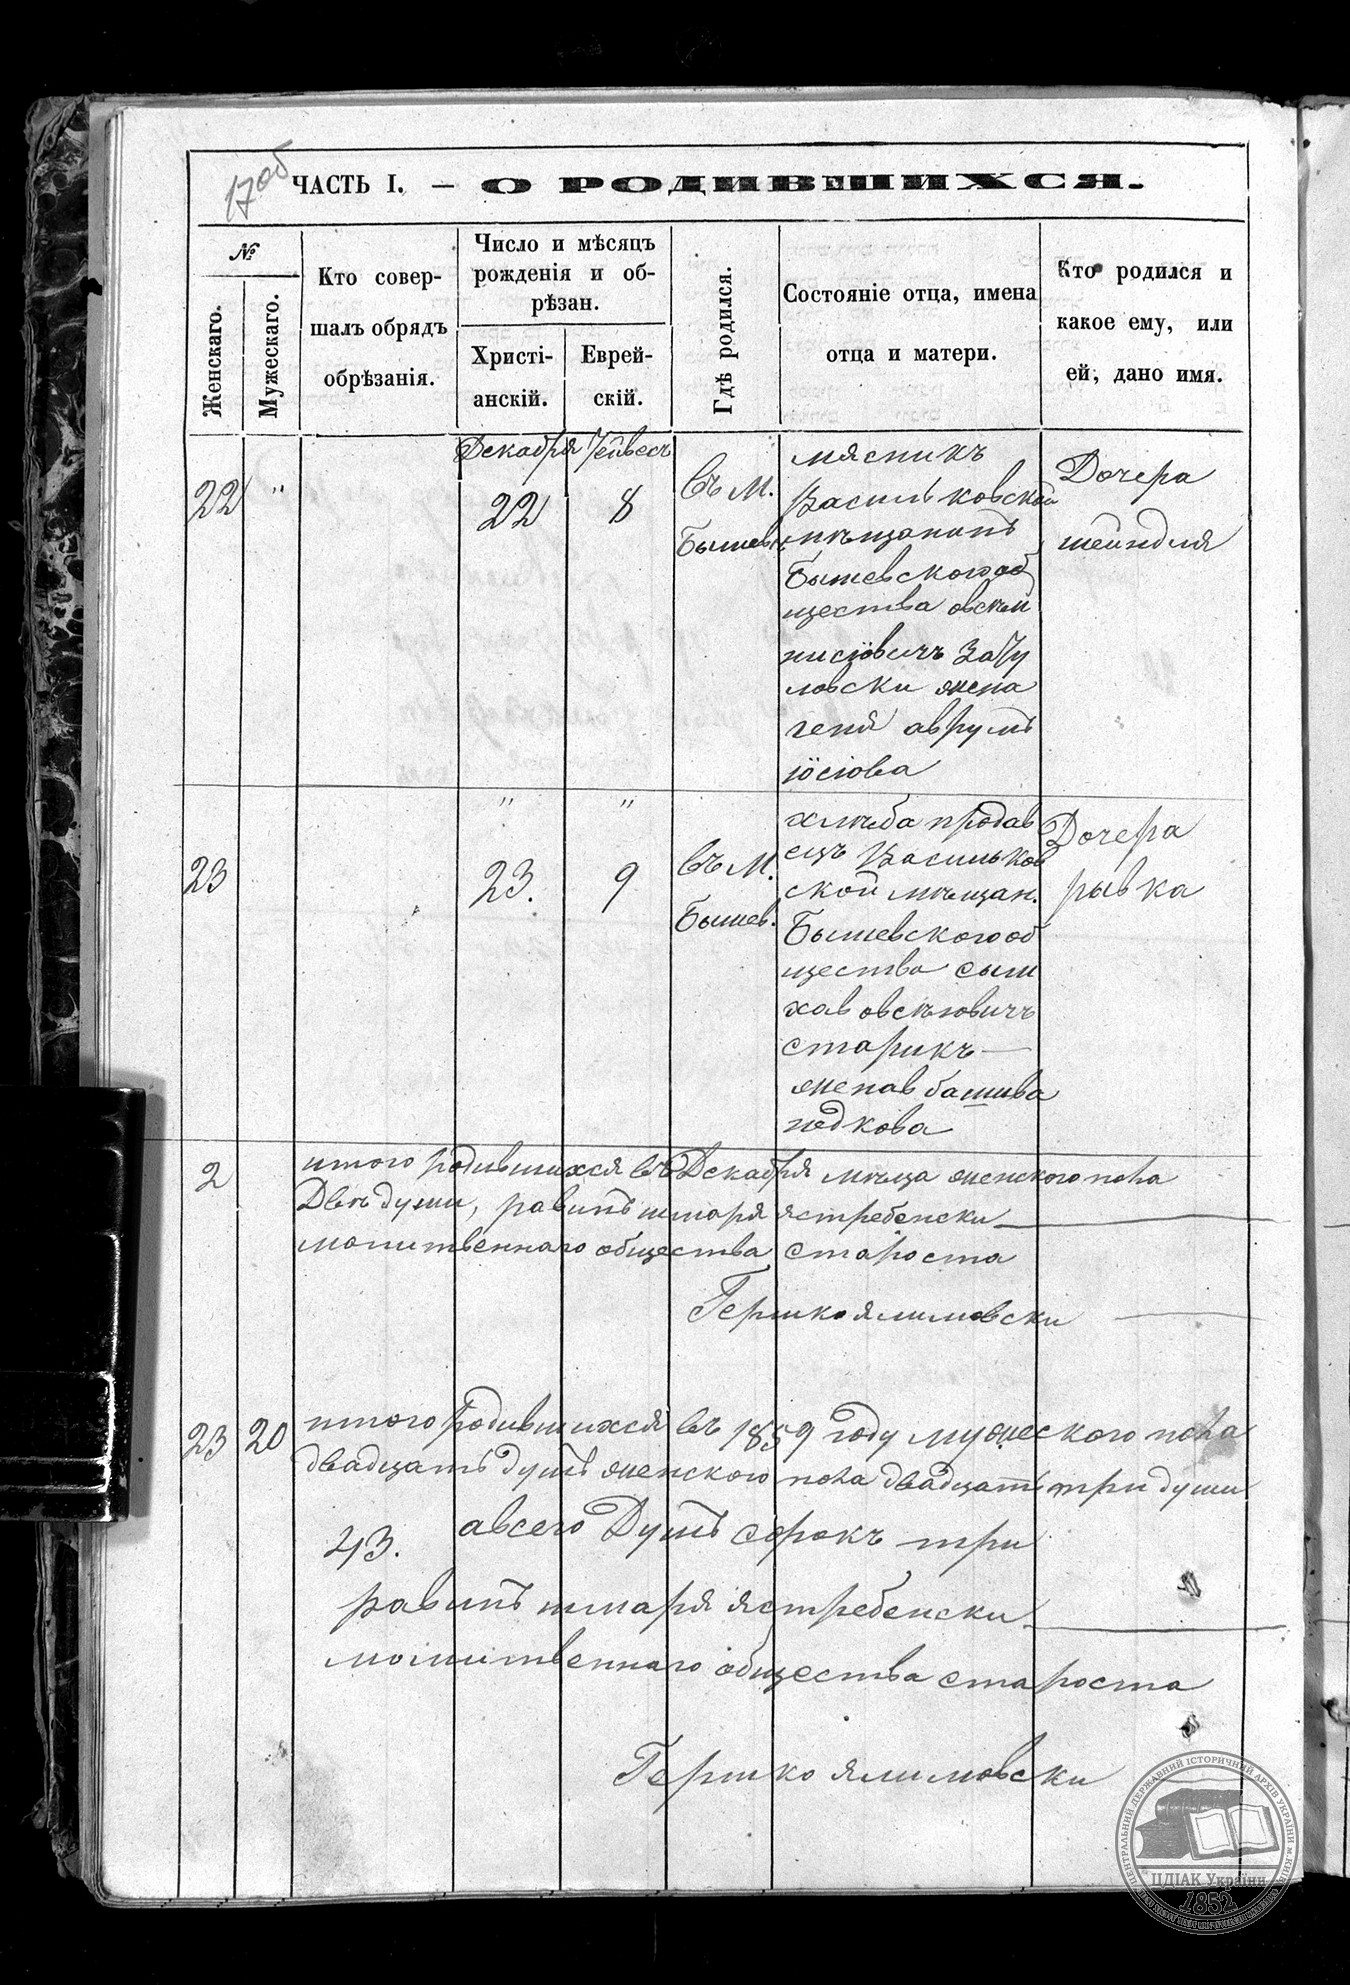 17 об
ЧАСТЬ I. — О РОДИВШИХСЯ.
№
Женскаго.
Мужескаго.
Кто совер-
шалъ обрядъ
обрѣзанія.
Число и мѣсяцъ
рожденія и об-
рѣзан.
Христі-
анскій.
Еврей-
скій.
Гдѣ родился.
Состояніе отца, имена
отца и матери.
Кто родился и
какое ему, или
ей, дано имя.
Декабря
22 "
22
8
въ М.
Бышев
мясникъ
Васильковской
мѣщанинъ
Бышевского об
щества
жена
аврумъ
іосіова
Дочера
шейндля
" "
23
23.
9
въ М.
Бышев.
хлѣба продав
ецъ Васильков
ской мѣщан.
Бышевского об
щества сым
хав овсѣіовичъ
старикъ —
женав башива
Дочера
рывка
2
итого родившихся въ Декабря мѣца женского пола
Двѣ души, равинъ шмаря ястребенски
молитвеннаго общества староста
Гершко ялимовски
23 20
итого родившихся въ 1859 году мужеского пола
двадцать душъ женского пола двадцать три души
43.
а всего Душъ сорокъ три
равинъ шмаря ястребенски
молитвеннаго общества староста
Гершко ялимовски
ЦЕНТРАЛЬНИЙ ДЕРЖАВНИЙ ІСТОРИЧНИЙ АРХІВ УКРАЇНИ, м. КИЇВ
ЦДІАК України
1852